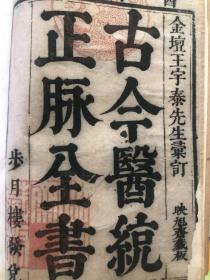 金壇王宇泰先生彙訂
古今醫統
正脉全書
映旭齋藏板
步月樓發兌